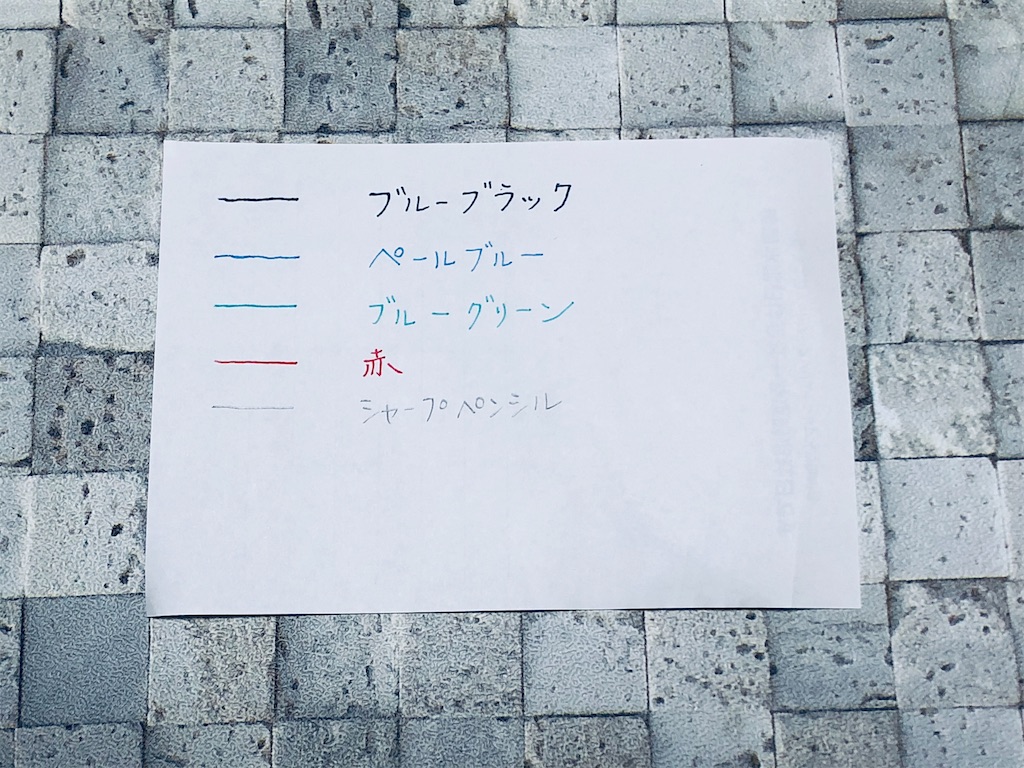 ブルーブラック
ペールブルー
ブルーグリーン
赤
シャープペンシル